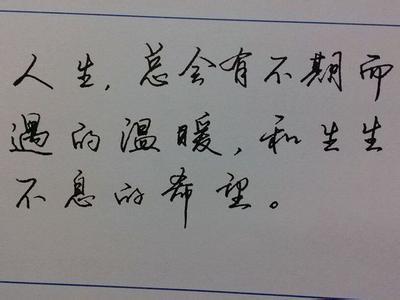 人生，总会有不期而
遇的温暖，和生生
不息的希望。